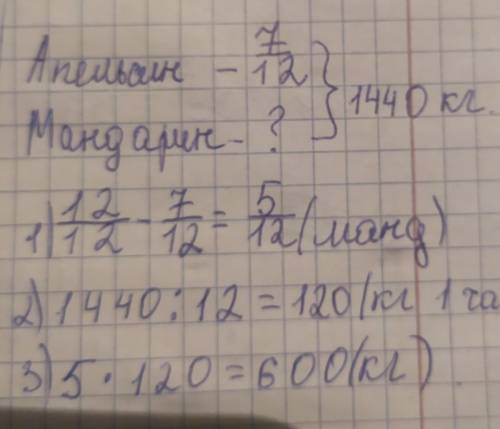 Апельсин - 7/12 } 1440 кг.
Мандарин - ?
1) 12/12 - 7/12 = 5/12 (манд)
2) 1440 : 12 = 120 (кг 1 ча
3) 5 · 120 = 600 (кг)